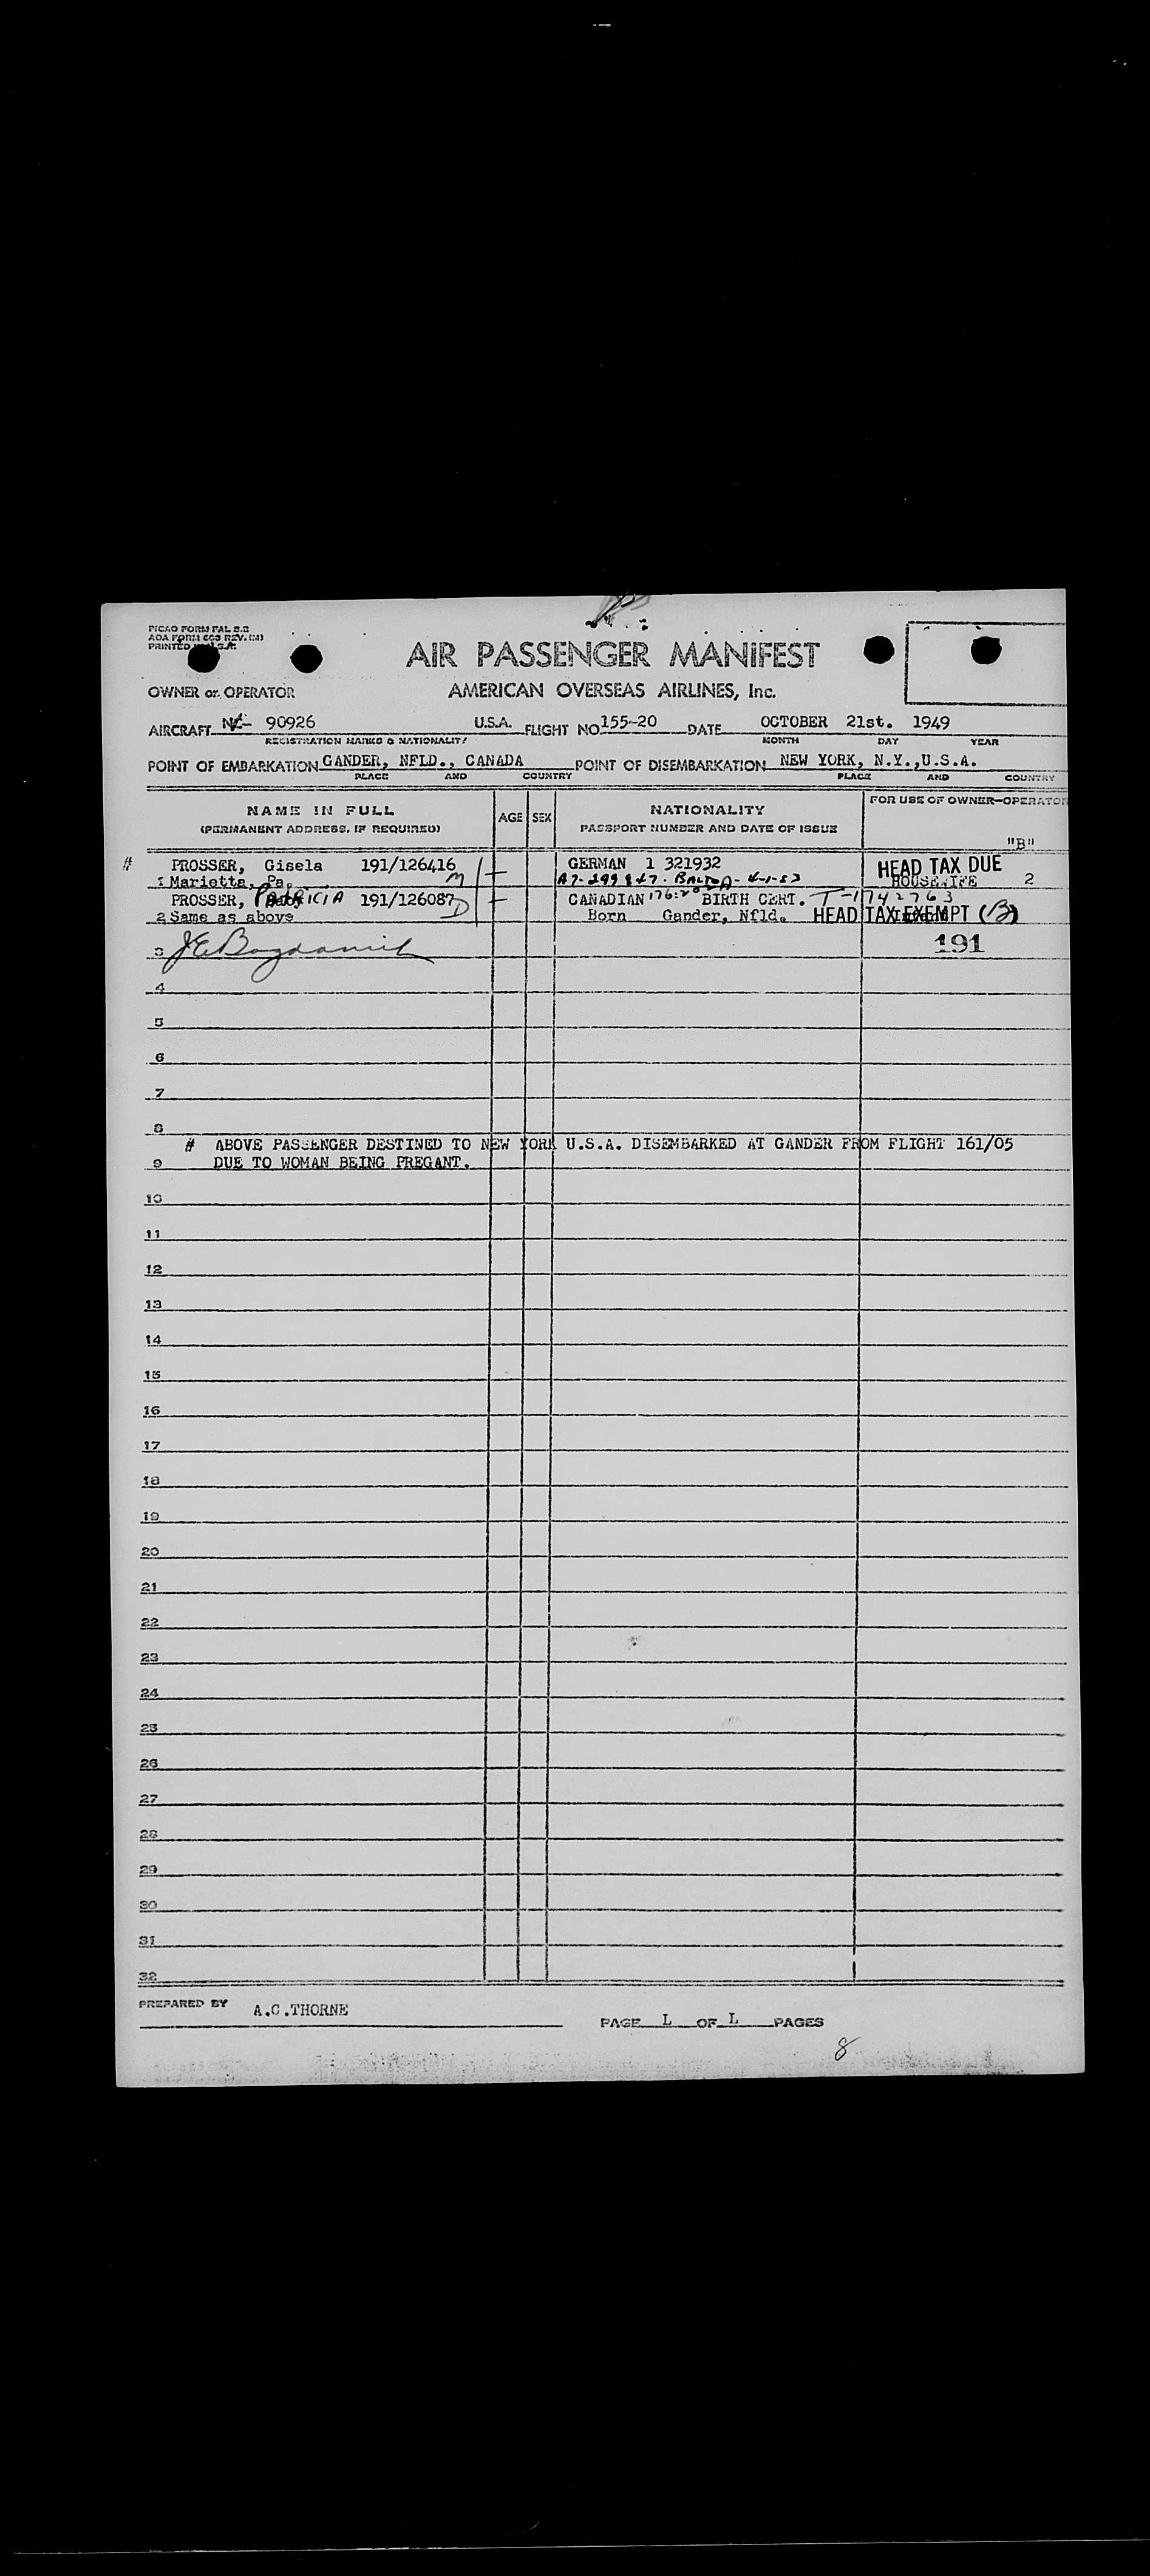 PICAO FORM FAL 2.2
AOA FORM 603 REV.
PRINTED U.S.A.
AIR PASSENGER MANIFEST
OWNER or OPERATOR AMERICAN OVERSEAS AIRLINES, Inc.
AIRCRAFT 90926 U.S.A. FLIGHT NO. 155-20 DATE OCTOBER 21st. 1949
REGISTRATION MARKS & NATIONALITY MONTH DAY YEAR
POINT OF EMBARKATION GANDER, NFLD., CANADA POINT OF DISEMBARKATION NEW YORK, N.Y.,U.S.A.
PLACE AND COUNTRY PLACE AND COUNTRY
NAME IN FULL AGE SEX NATIONALITY FOR USE OF OWNER-OPERATOR
(PERMANENT ADDRESS, IF REQUIRED) PASSPORT NUMBER AND DATE OF ISSUE
"B"
# PROSSER, Gisela 191/126416 GERMAN 1 321932 HEAD TAX DUE
1 Marietta, Pa. M HOUSEWIFE 2
PROSSER, PATRICIA 191/126087 CANADIAN BIRTH CERT. T-1742763
2 Same as above D Born Gander, Nfld. HEAD TAX EXEMPT (B)
3 191
4
5
6
7
8
# ABOVE PASSENGER DESTINED TO NEW YORK U.S.A. DISEMBARKED AT GANDER FROM FLIGHT 161/05
9 DUE TO WOMAN BEING PREGANT.
10
11
12
13
14
15
16
17
18
19
20
21
22
23
24
25
26
27
28
29
30
31
32
PREPARED BY A.C.THORNE
PAGE L OF L PAGES
8